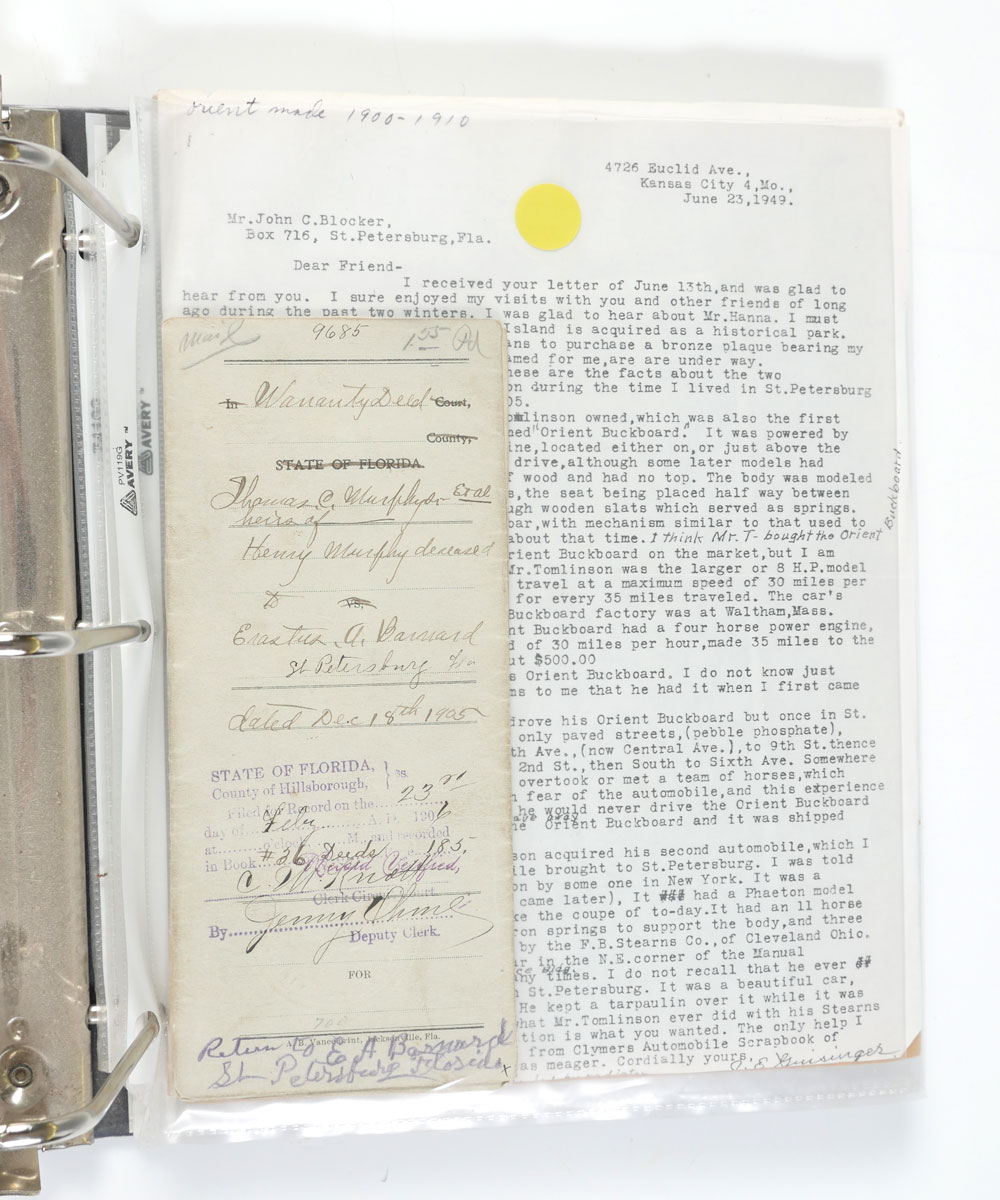 orient made 1900-1910
4726 Euclid Ave.,
Kansas City 4,Mo.,
June 23,1949.
Mr.John C.Blocker,
Box 716, St.Petersburg,Fla.
Dear Friend-
I received your letter of June 13th,and was glad to
hear from you. I sure enjoyed my visits with you and other friends of long
ago during the past two winters. I was glad to hear about Mr.Hanna. I must
Island is acquired as a historical park.
ans to purchase a bronze plaque bearing my
amed for me,are are under way.
hese are the facts about the two
on during the time I lived in St.Petersburg
05.
mlinson owned,which was also the first
ned "Orient Buckboard." It was powered by
ine,located either on,or just above the
drive,although some later models had
f wood and had no top. The body was modeled
s,the seat being placed half way between
ugh wooden slats which served as springs.
bar,with mechanism similar to that used to
about that time. I think Mr. T- bought the Orient
Buckboard
rient Buckboard on the market,but I am
Mr.Tomlinson was the larger or 8 H.P.model
travel at a maximum speed of 30 miles per
for every 35 miles traveled. The car's
Buckboard factory was at Waltham,Mass.
nt Buckboard had a four horse power engine,
d of 30 miles per hour,made 35 miles to the
ut $500.00
s Orient Buckboard. I do not know just
ms to me that he had it when I first came
drove his Orient Buckboard but once in St.
only paved streets,(pebble phosphate),
th Ave.,(now Central Ave.),to 9th St.thence
2nd St.,then South to Sixth Ave. Somewhere
overtook or met a team of horses,which
n fear of the automobile,and this experience
he would never drive the Orient Buckboard
he Orient Buckboard and it was shipped
son acquired his second automobile,which I
ile brought to St.Petersburg. I was told
on by some one in New York. It was a
came later), It had a Phaeton model
ke the coupe of to-day.It had an 11 horse
ron springs to support the body,and three
by the F.B.Stearns Co.,of Cleveland Ohio.
ar in the N.E.corner of the Manual
ny times. I do not recall that he ever
n St.Petersburg. It was a beautiful car,
He kept a tarpaulin over it while it was
hat Mr.Tomlinson ever did with his Stearns
tion is what you wanted. The only help I
from Clymers Automobile Scrapbook of
as meager. Cordially yours,
Mail 9685 1.55 Pd
In Warranty Deed Court,
County,
STATE OF FLORIDA.
Thomas C. Murphy Et al
heirs of
Henry Murphy deceased
to vs.
Erastus A. Barnard
St Petersburg Fla
dated Dec 18th 1905
STATE OF FLORIDA, } ss.
County of Hillsborough,
Filed for Record on the 23rd
day of Feby A. D. 1906
at o'clock M., and recorded
in Book #26 Deeds 185.
Record Verified,
Clerk Circuit Court.
By Deputy Clerk.
FOR
A. B. Vance, Print, Jacksonville, Fla.
Return to E A Barnard
St Petersburg Florida
PV119G
AVERY™
AVERY™